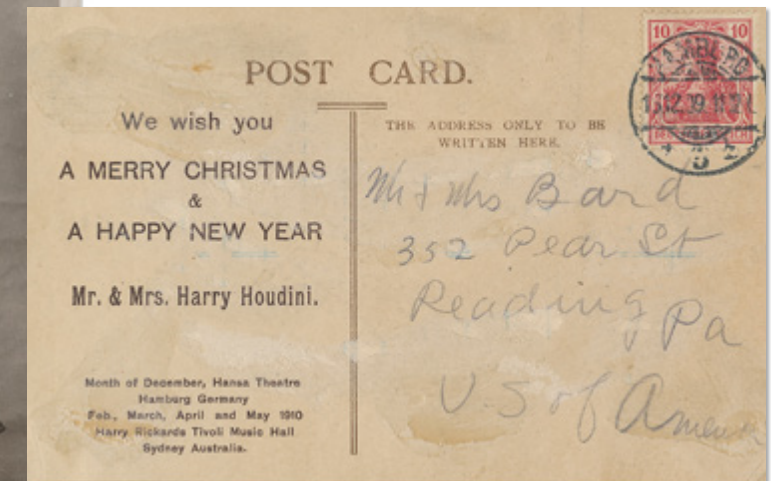 POST CARD.
We wish you
A MERRY CHRISTMAS
&
A HAPPY NEW YEAR
Mr. & Mrs. Harry Houdini.
Month of December, Hansa Theatre
Hamburg Germany
Feb., March, April and May 1910
Harry Rickards Tivoli Music Hall
Sydney Australia.
THE ADDRESS ONLY TO BE
WRITTEN HERE.
Mr & Mrs Bard
352 Pear St
Reading Pa
U.S of America
10 10
HAMBURG